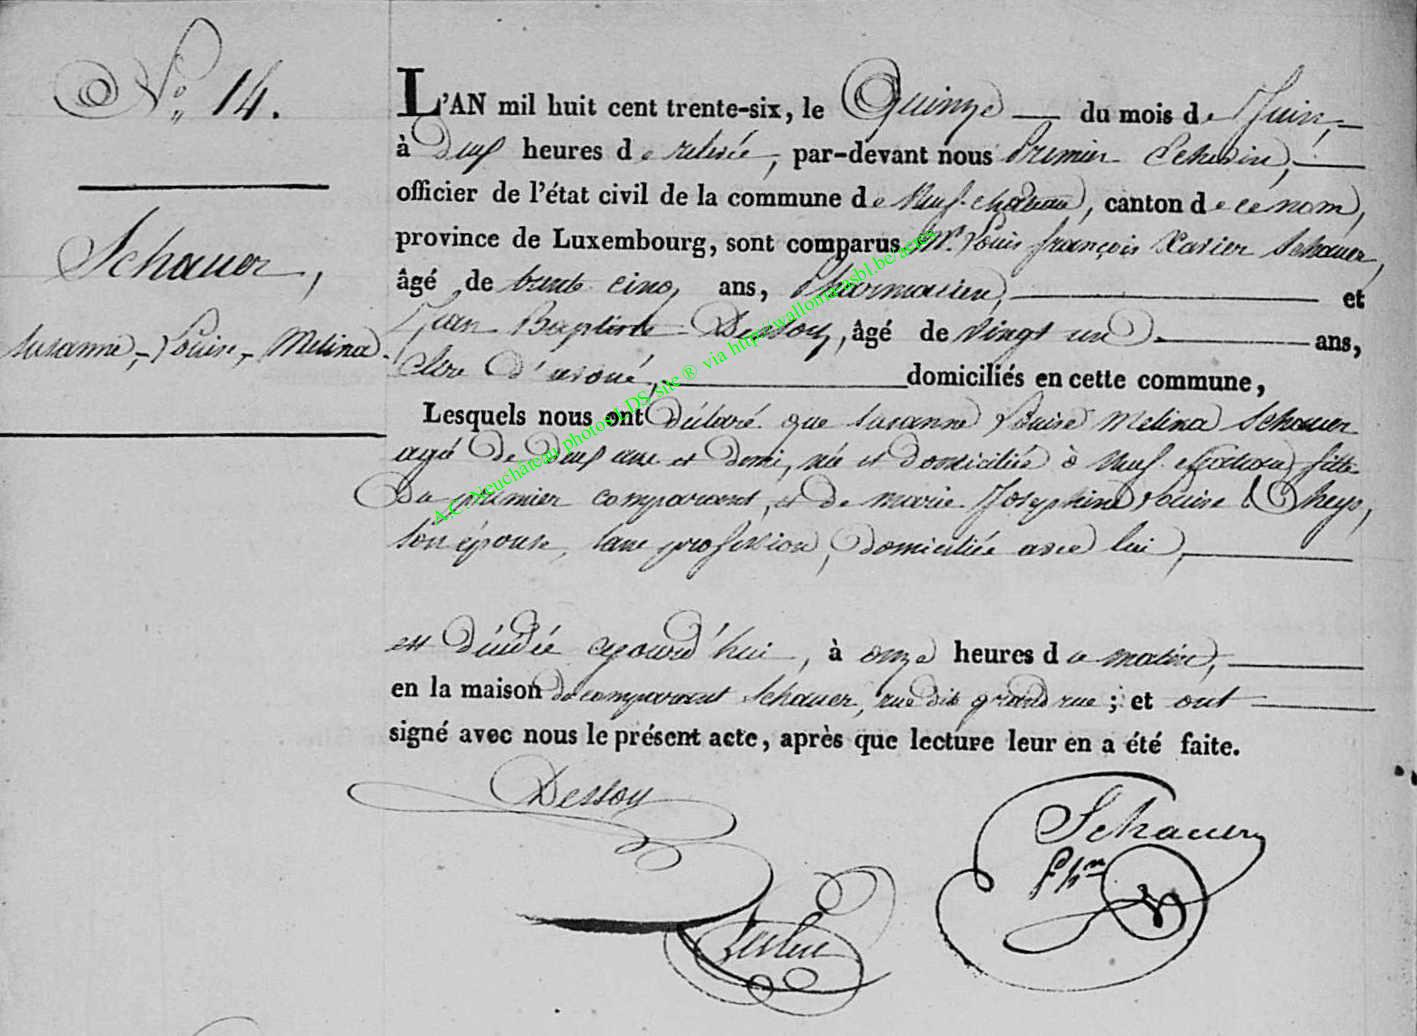 N° 14.
Schauer,
Susanne, Louise, Melina.
L'AN mil huit cent trente-six, le Quinze du mois de Juin,
à deux heures de relevée, par-devant nous Premier Echevin,
officier de l'état civil de la commune de Neufchâteau, canton de ce nom,
province de Luxembourg, sont comparus Mr. Louis françois Xavier Schauer,
âgé de trente cinq ans, Pharmacien, et
Jean Baptiste Dessoy, âgé de vingt un ans,
Clerc d'avoué, domiciliés en cette commune,
Lesquels nous ont déclaré que Susanne Louise Melina Schauer
agée de deux ans et demi, née et domiciliée à Neufchateau, fille
du premier comparant, et de marie Josephine Louise
son épouse, sans profession, domiciliée avec lui,
est décédée aujourd'hui, à onze heures du matin,
en la maison du comparant Schauer, rue dite grand rue ; et ont
signé avec nous le présent acte, après que lecture leur en a été faite.
Dessoy
Schauer
Phen
A.C. Neuchâteau photos LDS site ® via http://wallonia.asbl.be/actes